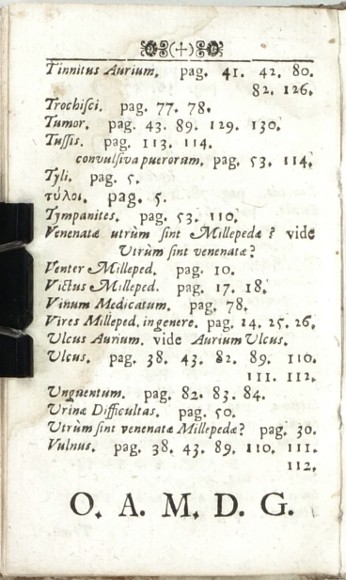 Tinnitus Aurium. pag. 41. 42. 80.
82. 126.
Trochiſci. pag. 77. 78.
Tumor. pag. 43. 89. 129. 130.
Tuſſis. pag. 113. 114.
convulſiva puerorum. pag. 53. 114.
Tyli. pag. 5.
τύλοι. pag. 5.
Tympanites. pag. 53. 110.
Venenatæ utrùm ſint Millepedæ? vide
Utrùm ſint venenatæ?
Venter Milleped. pag. 10.
Victus Milleped. pag. 17. 18.
Vinum Medicatum. pag. 78.
Vires Milleped. in genere. pag. 14. 25. 26.
Ulcus Aurium. vide Aurium Ulcus.
Ulcus. pag. 38. 43. 82. 89. 110.
111. 112.
Unguentum. pag. 82. 83. 84.
Urinæ Difficultas. pag. 50.
Utrùm ſint venenatæ Millepedæ? pag. 30.
Vulnus. pag. 38. 43. 89. 110. 111.
112.
O. A. M. D. G.